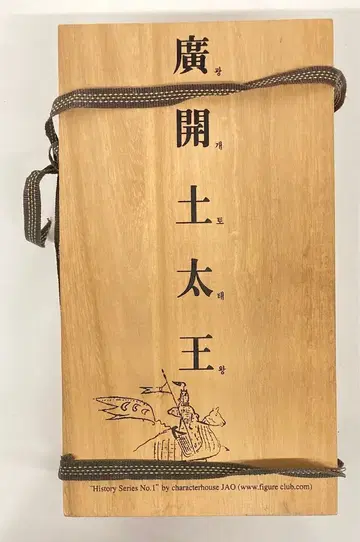 廣 광
開 개
土 토
太 태
王 왕
"History Series No.1" by characterhouse JAO (www.figure club.com)